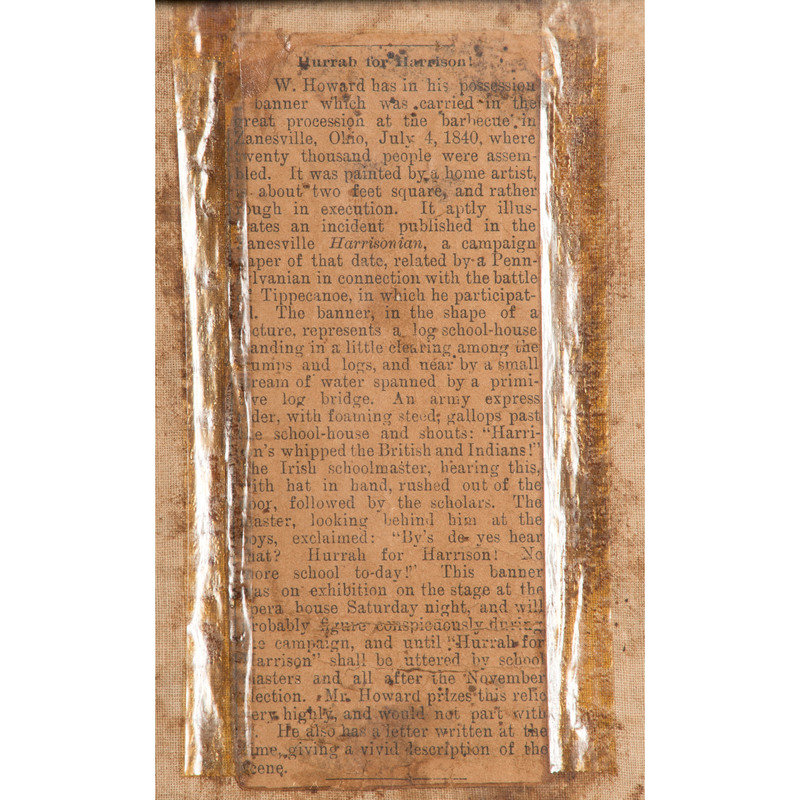 Hurrah for Harrison!
W. Howard has in his possession
banner which was carried in the
reat procession at the barbecue in
anesville, Ohio, July 4, 1840, where
wenty thousand people were assem-
bled. It was painted by a home artist,
about two feet square, and rather
ough in execution. It aptly illus-
ates an incident published in the
anesville Harrisonian, a campaign
aper of that date, related by a Penn-
lvanian in connection with the battle
Tippecanoe, in which he participat-
d. The banner, in the shape of a
icture, represents a log school-house
anding in a little clearing among the
umps and logs, and near by a small
ream of water spanned by a primi-
ve log bridge. An army express
ider, with foaming steed, gallops past
he school-house and shouts: "Harri-
on's whipped the British and Indians!"
The Irish schoolmaster, hearing this,
ith hat in hand, rushed out of the
oor, followed by the scholars. The
aster, looking behind him at the
oys, exclaimed: "By's de yes hear
hat? Hurrah for Harrison! No
ore school to-day!" This banner
as on exhibition on the stage at the
pera house Saturday night, and will
robably figure conspicuously during
he campaign, and until "Hurrah for
Harrison" shall be uttered by school
asters and all after the November
lection. Mr. Howard prizes this relic
very highly, and would not part with
. He also has a letter written at the
ime, giving a vivid description of the
cene.